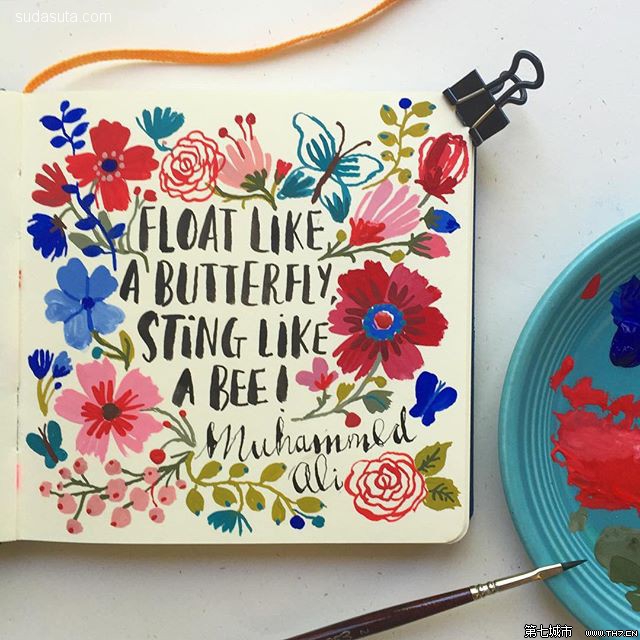 sudasuta.com
FLOAT LIKE
A BUTTERFLY,
STING LIKE
A BEE!
Muhammed
Ali
第七城市 WWW.TH7.CN